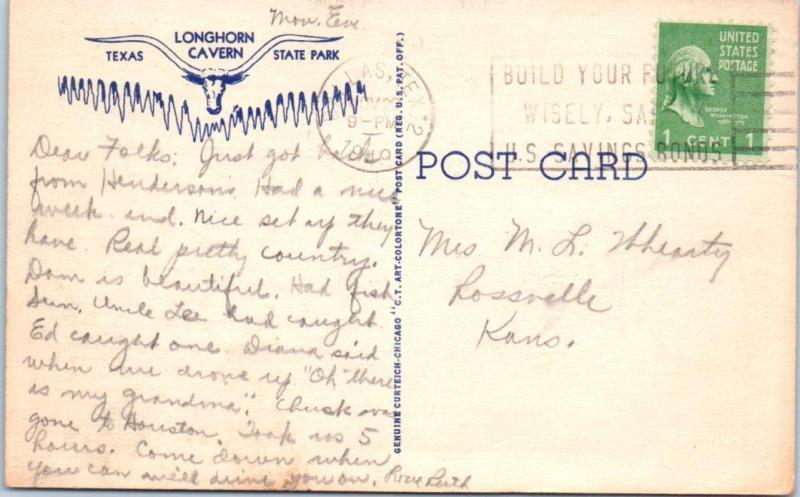 Mon. Eve
LONGHORN
CAVERN
TEXAS STATE PARK
LAS, TEX. 2
9-PM
BUILD YOUR FUTURE
WISELY, SA
U.S. SAVINGS BONDS
UNITED
STATES
POSTAGE
GEORGE
WASHINGTON
1 CENT 1
POST CARD
GENUINE CURTEICH-CHICAGO "C.T. ART-COLORTONE" POST CARD (REG. U.S. PAT. OFF.)
Dear Folks; Just got back
from Hendersons. Had a nice
week end. Nice set up they
have. Real pretty country.
Dam is beautiful. Had fish
Sun. Uncle Lee had caught.
Ed caught one. Diana said
when we drove up "Oh there
is my grandma". Chuck was
gone to Houston. Took us 5
hours. Come down when
you can we'll drive you on. Love Ruth
Mrs M. L. Whearty
Rossville
Kans.